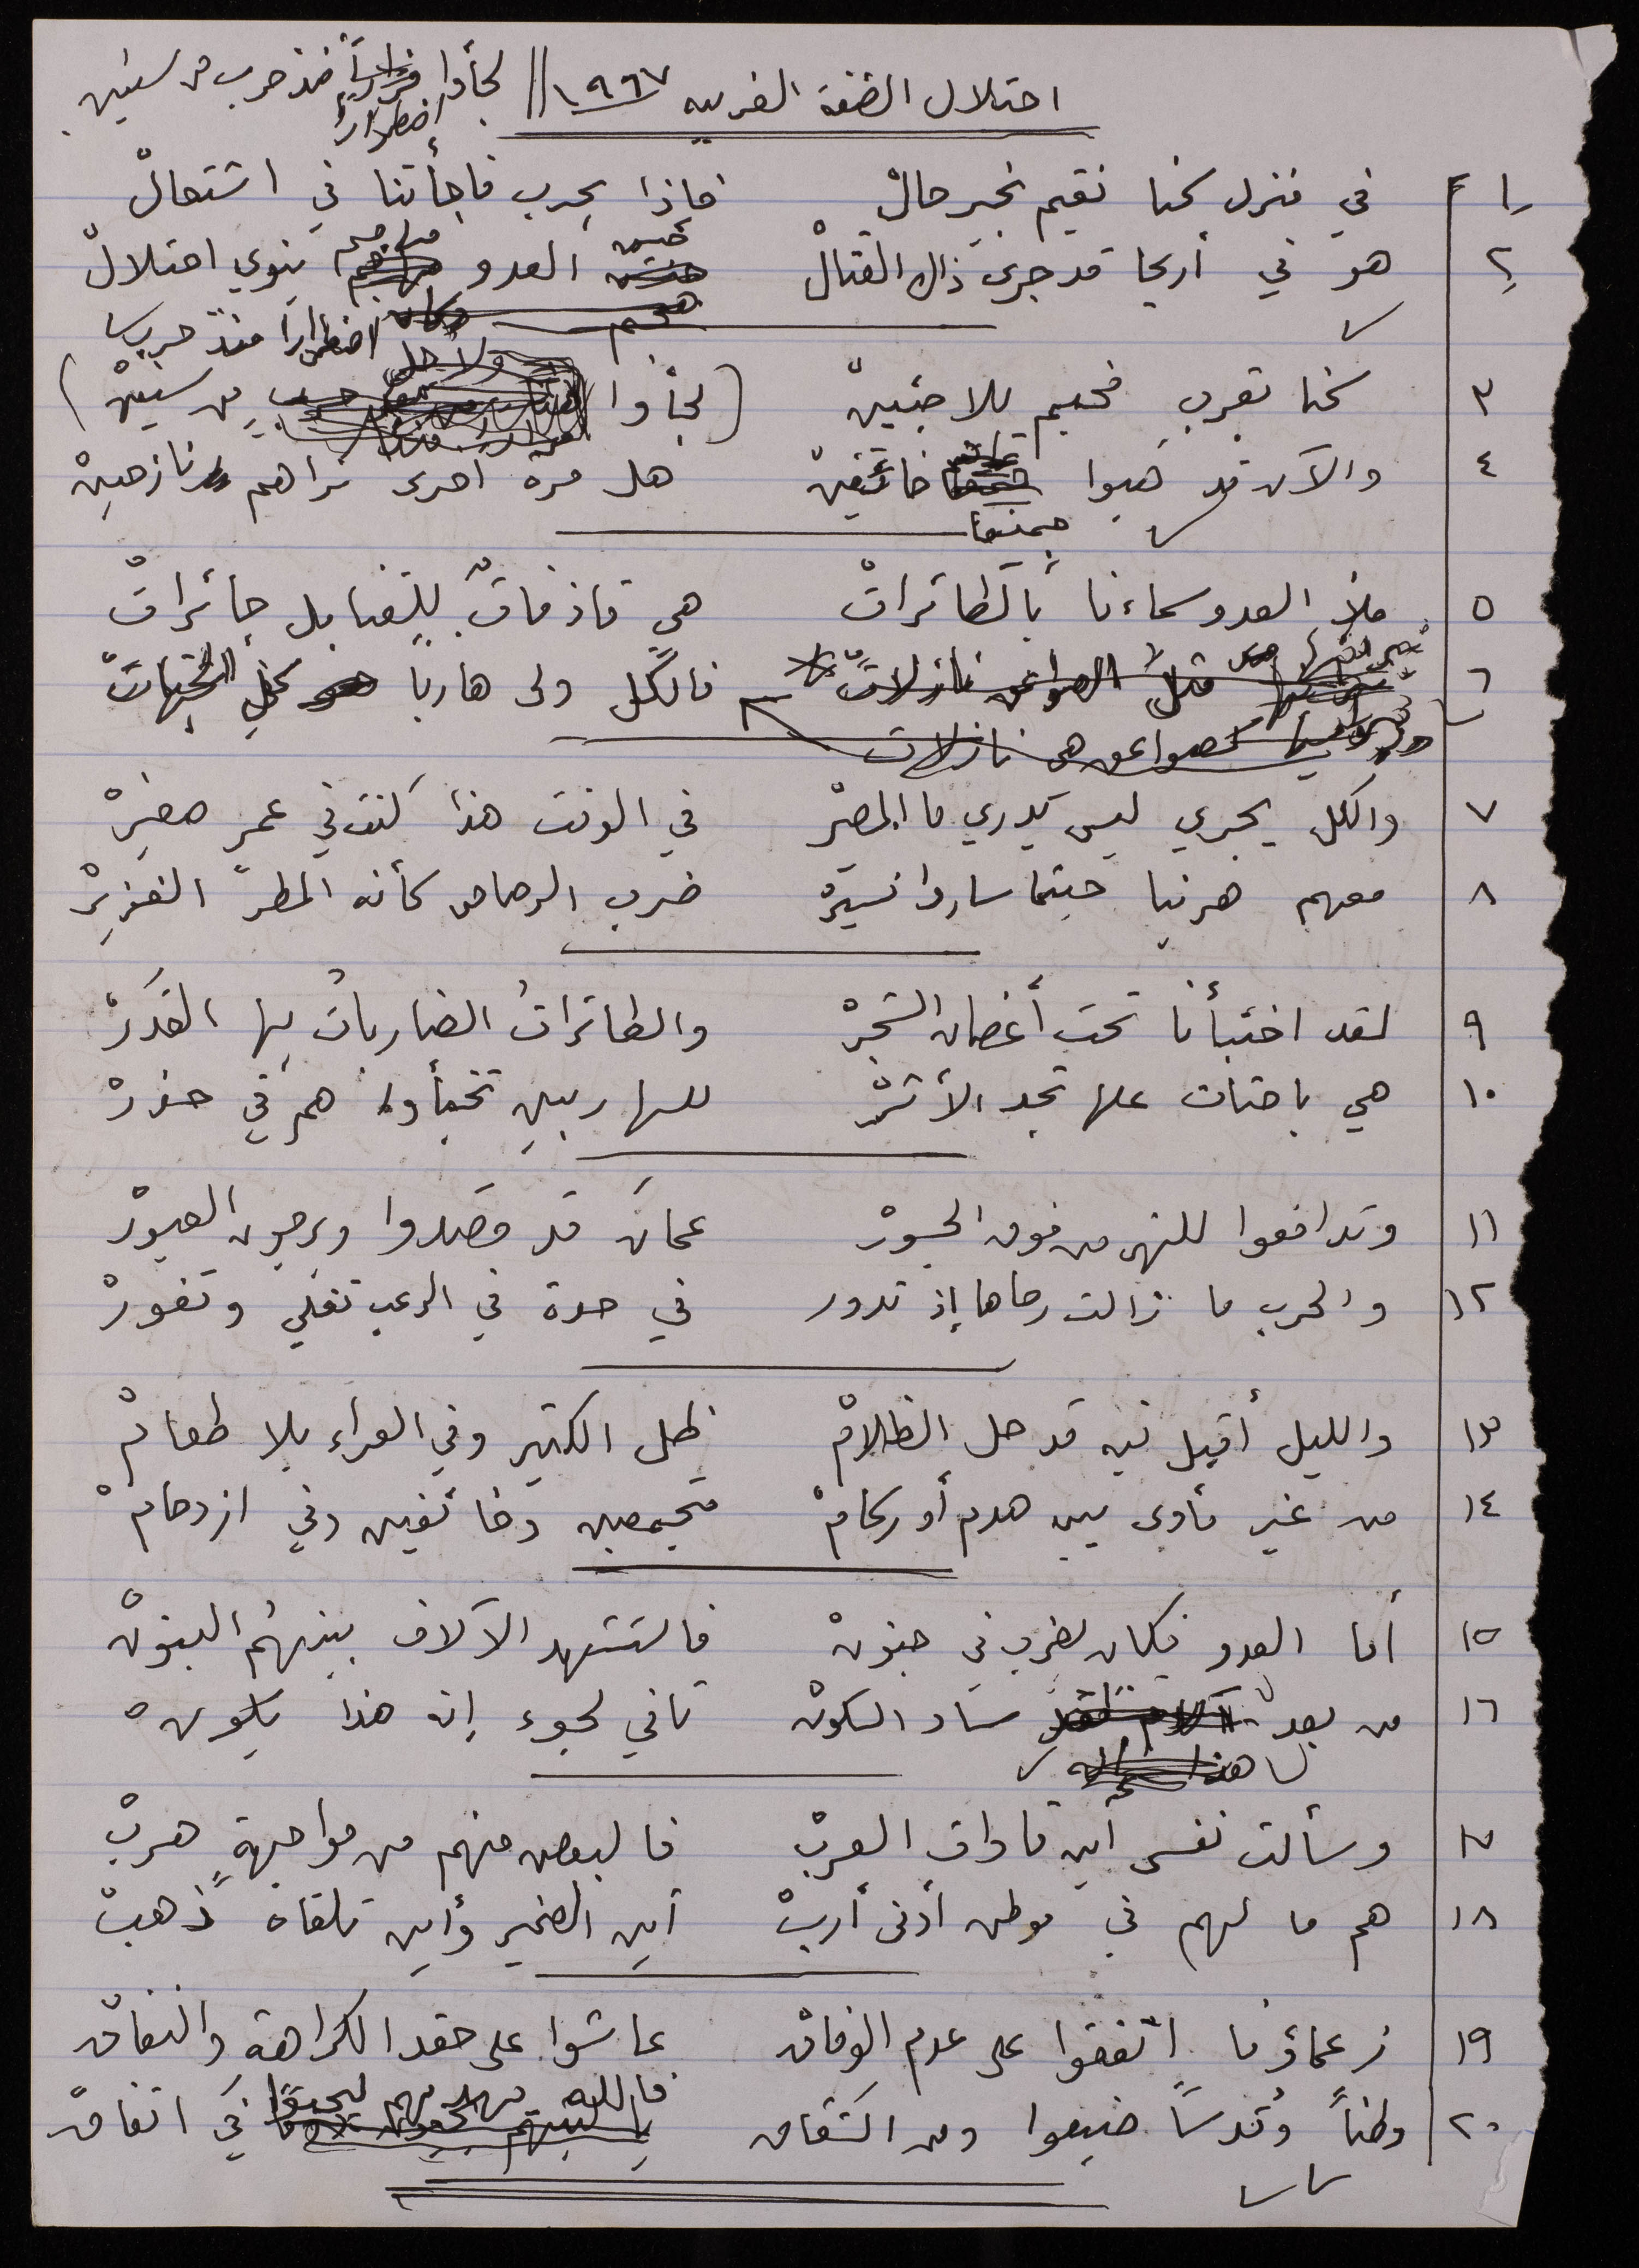 احتلال الضفة الغربيه ١٩٦٧ // لجأوا اضطراراً منذ حرب من سنين
١ في منزل كنا نقيم بخير حالْ فإذا بحرب فاجأتنا في اشتعالْ
٢ هو في أريحا قد جرى ذاك القتالْ العدو مهاجم ينوي احتلالْ
اضطرارا منذ حرب
٣ كنا بقرب مخيم للاجئينْ (لجأوا من سنينْ)
٤ والآن قد هبوا خائفينْ هل مرة أخرى نراهم نازحينْ
جميعا
٥ ملأ العدو سماءنا بالطائراتْ هي قاذفاتٌ للقنابل جائراتْ
٦ مثل الصواعق نازلاتْ فالكل ولى هاربا كل الجهاتْ
كصواعق هي نازلات
٧ والكل يجري ليس يدري ما المصيرْ في الوقت هذا كنت في عمر صغيرْ
٨ معهم هربنا حيثما ساروا نسيرْ ضرب الرصاص كأنه المطر الغزيرْ
٩ لقد اختبأنا تحت أغصان الشجرْ والطائراتُ الضارباتُ بها الخطرْ
١٠ هي باحثات علها تجد الأثرْ للهاربين تخبأوا هم في حذرْ
١١ وتدافعوا للنهر من فوق الجسورْ عمان قد قصدوا ويرجون العبورْ
١٢ والحرب ما زالت رحاها إذ تدور في حدة في الرعب تغلي وتفورْ
١٣ والليل أقبل فيه قد حل الظلامْ ظل الكثير وفي العراء بلا طعامْ
١٤ من غير مأوى بين هدم أو ركامْ متجمعين وخائفين وفي ازدحامْ
١٥ أما العدو فكان يضرب في جنونْ فاستشهد الآلاف بينهُم البنونْ
١٦ من بعد ساد السكونْ ثاني لجوء إن هذا يكونْ
هذا
١٧ وسألت نفسي أين قادات العربْ فالبعض منهم من مواجهةٍ هربْ
١٨ هم ما لهم في موطن أدنى أربْ أين الضمير وأين تلقاه ذهبْ
١٩ زعماؤنا اتفقوا على عدم الوفاق عاشوا على حقد الكراهة والنفاق
٢٠ وطناً وقدساً ضيعوا ومن الشقاق فالله يهديهم ليبقوا في اتفاق